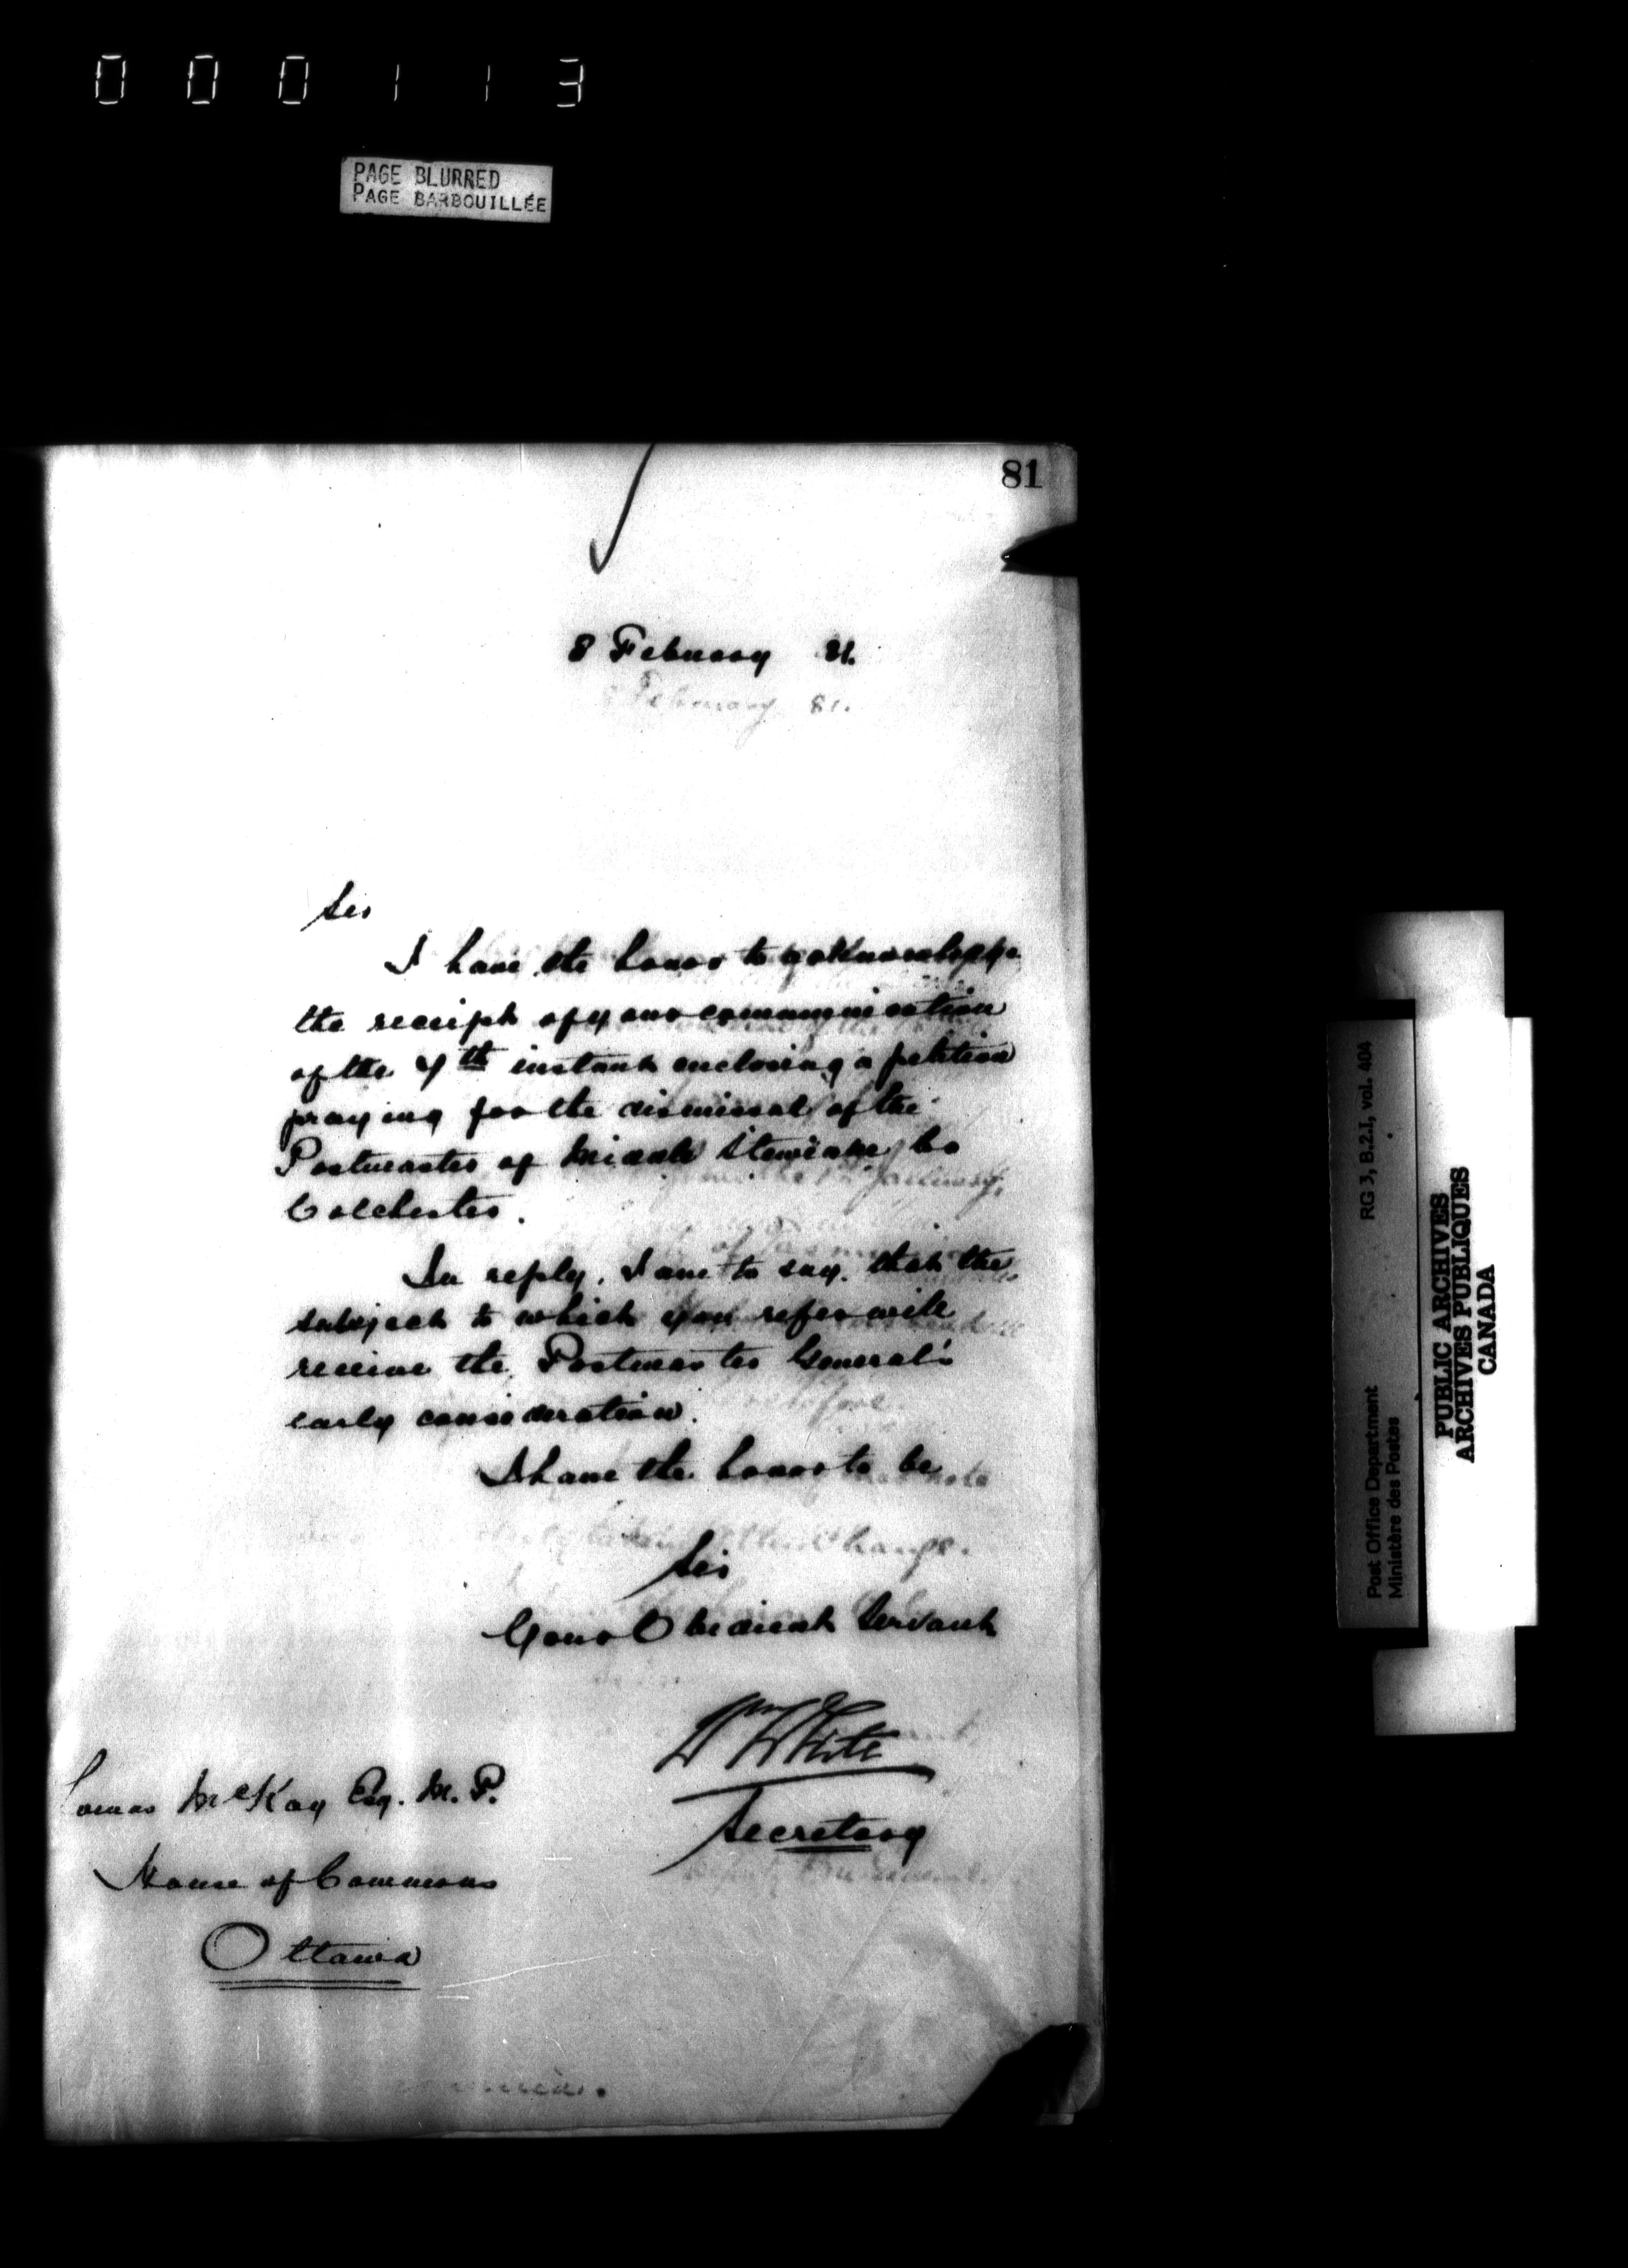 000113
PAGE BLURRED
PAGE BARBOUILLÉE
81
8 February 81.
Sir
I have the honor to acknowledge
the receipt of your communication
of the 7th instant enclosing a petition
praying for the dismissal of the
Postmaster of Middle Stewiacke Co
Colchester.
In reply, I am to say, that the
subject to which you refer will
receive the Postmaster General's
early consideration.
I have the honor to be
Sir
Your Obedient Servant
Wm White
Secretary
McKay Esq. M.P.
House of Commons
Ottawa
RG 3, B.2.I, vol. 404
Post Office Department
Ministère des Postes
PUBLIC ARCHIVES
ARCHIVES PUBLIQUES
CANADA